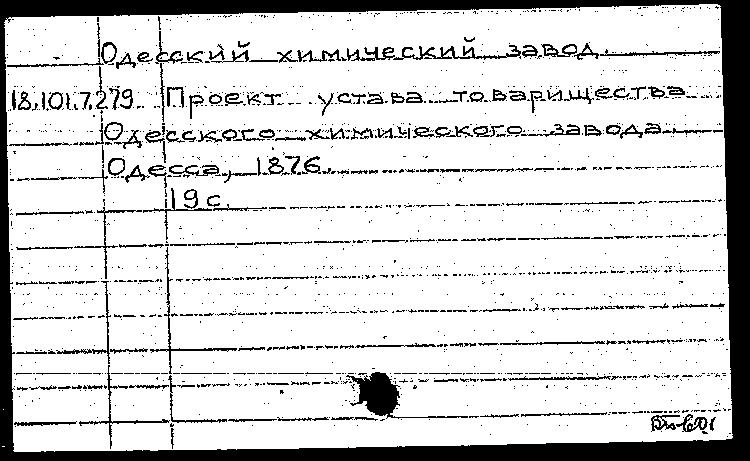 Одесский химический завод.
18.101.7.279 Проект устава товарищества
Одесского химического завода.
Одесса, 1876.
19 с.